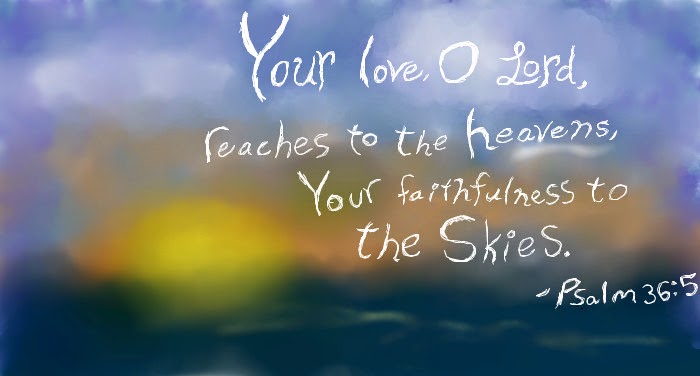 Your love, O Lord,
reaches to the heavens,
Your faithfulness to
the Skies.
- Psalm 36:5